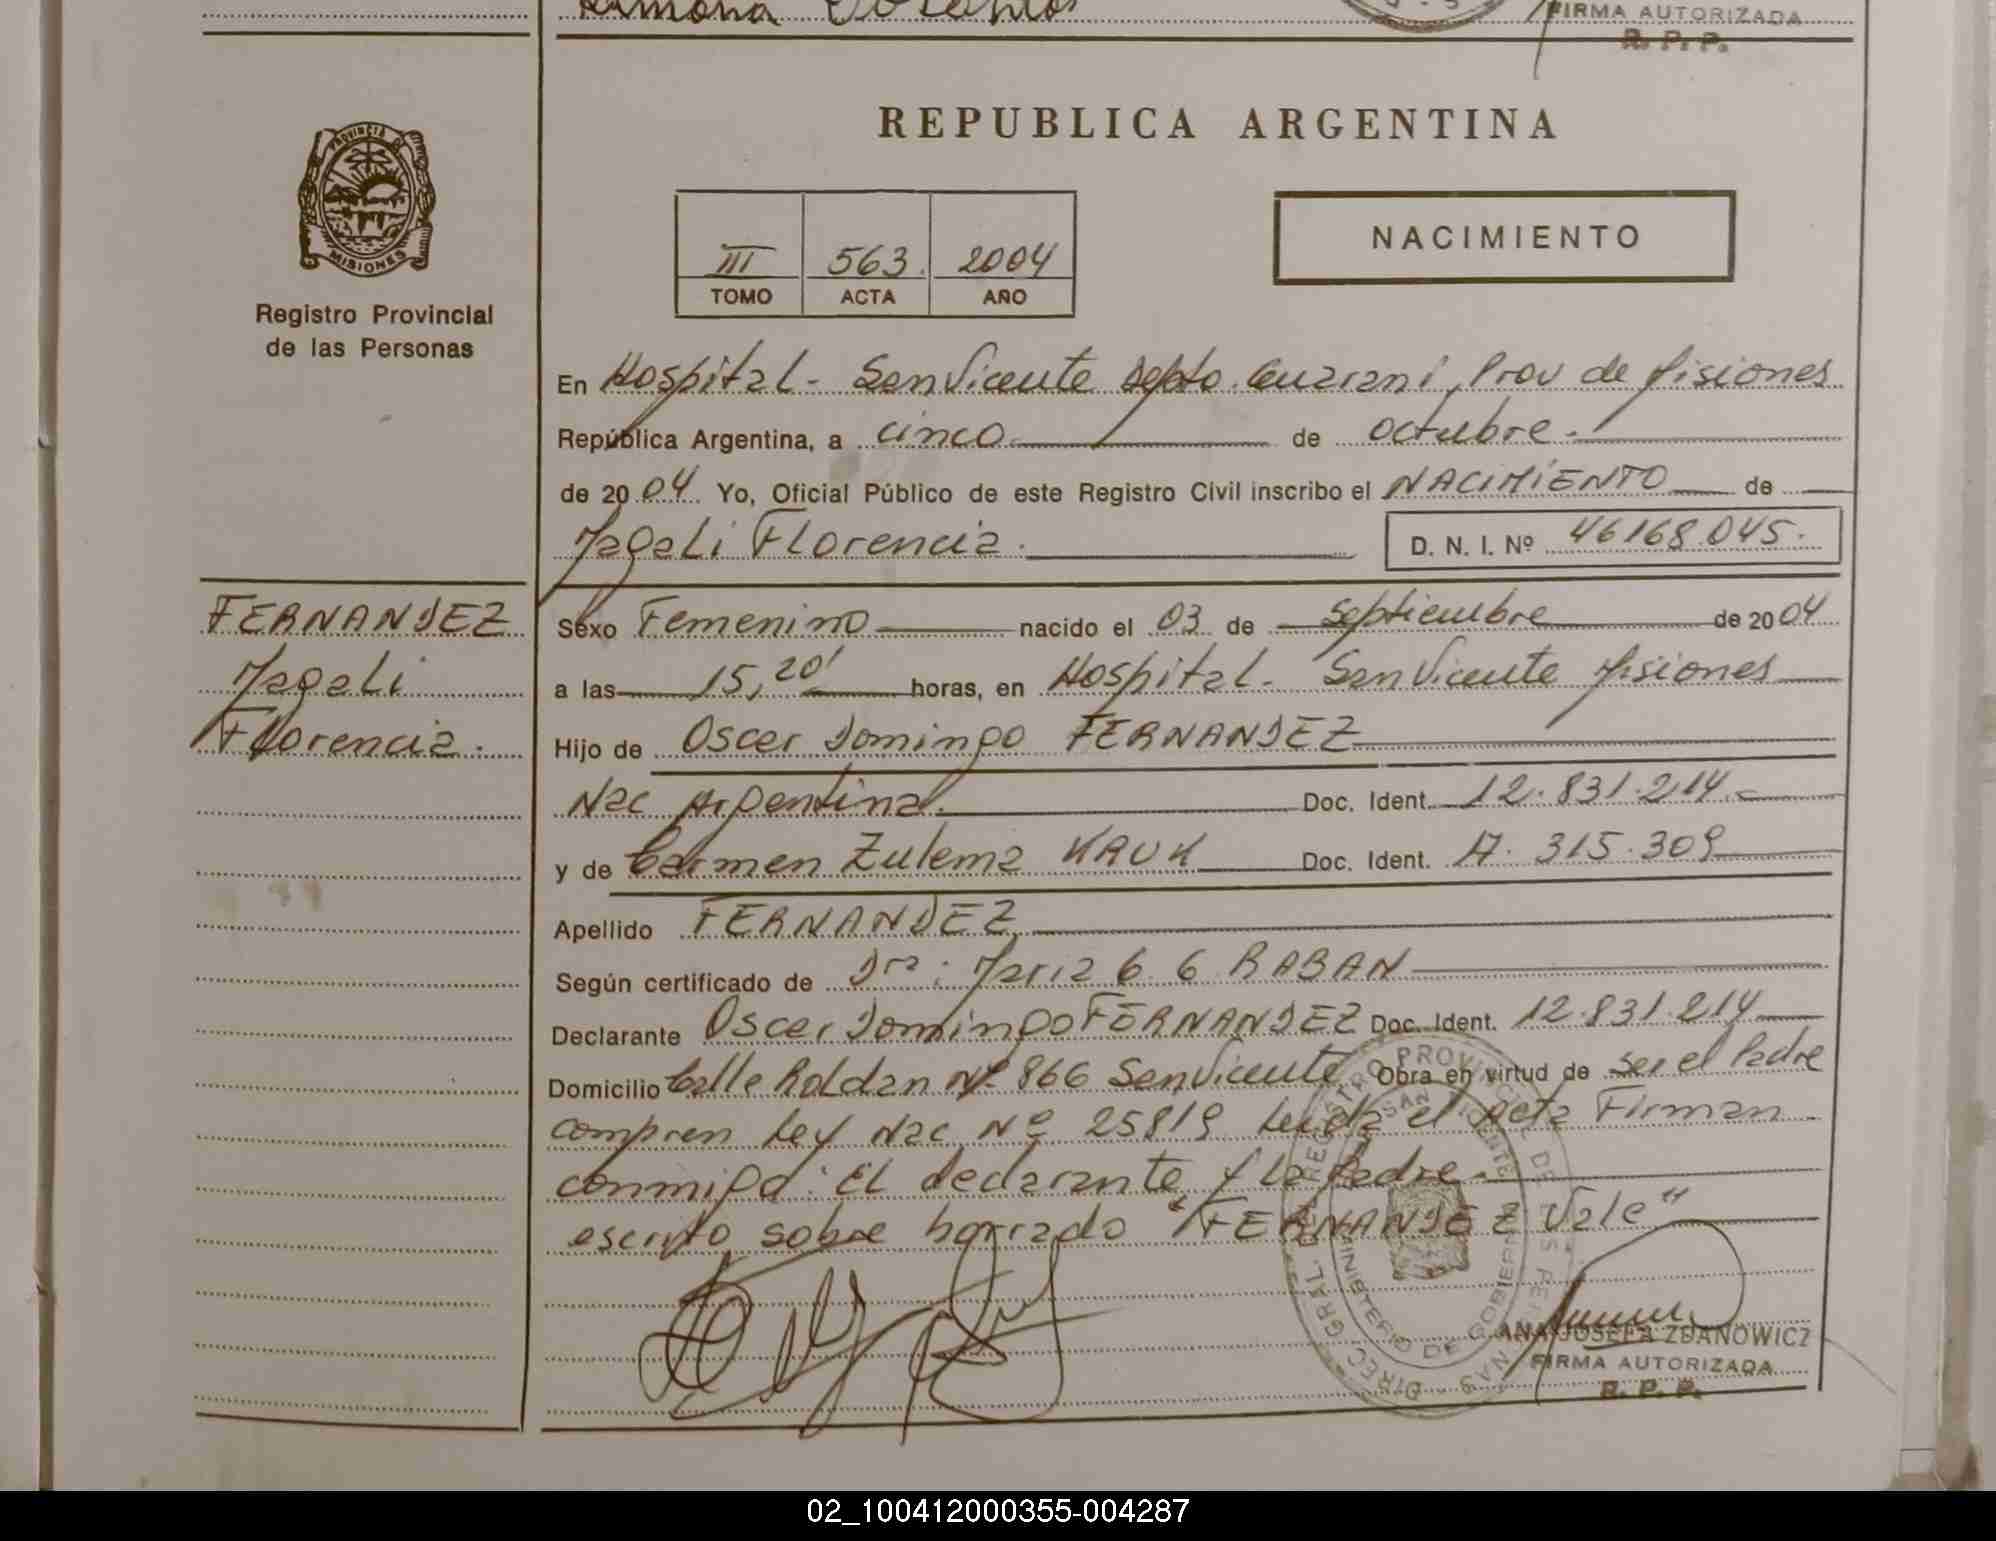 Ramona
FIRMA AUTORIZADA
R. P. P.
REPUBLICA ARGENTINA
PROVINCIA DE
MISIONES
Registro Provincial
de las Personas
III 563. 2004
TOMO ACTA AÑO
NACIMIENTO
En Hospital - San Vicente Depto. Guarani, Prov de Misiones
República Argentina, a cinco de octubre.
de 2004 Yo, Oficial Público de este Registro Civil inscribo el NACIMIENTO de
Magali Florencia. D. N. I. Nº 46168.045.
FERNANDEZ
Magali
Florencia.
Sexo Femenino nacido el 03 de Septiembre de 2004
a las 15,20' horas, en Hospital - San Vicente Misiones
Hijo de Oscar Domingo FERNANDEZ
Nac Argentina. Doc. Ident. 12.831.214.
y de Carmen Zulema KAUK Doc. Ident. 17.315.309
Apellido FERNANDEZ
Según certificado de Dra: Maria G. G RABAN
Declarante Oscar Domingo FERNANDEZ Doc. Ident. 12.831.214
Domicilio Calle Roldan Nº 866 San Vicente. Obra en virtud de ser el Padre
Ley Nac Nº 25819 Leida el Acta Firman
conmigo: El declarante y la Madre.
escrito sobre borrado "FERNANDEZ Vale"
DIREC. GRAL. DEL REGISTRO PROVINCIAL DE LAS PERSONAS
SAN VICENTE
MINISTERIO DE GOBIERNO
ANA JOSEFA ZDANOWICZ
FIRMA AUTORIZADA
R. P. P.
02_100412000355-004287